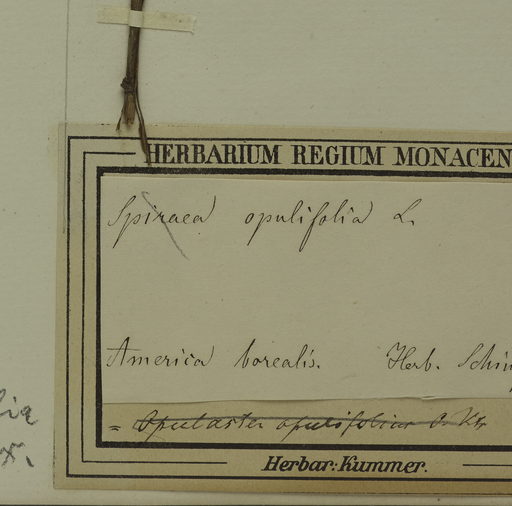 HERBARIUM REGIUM MONACEN
Spiraea opulifolia L.
America borealis. Herb. Schin
= Opulaster opulifolius O. Ktz
Herbar: Kummer.